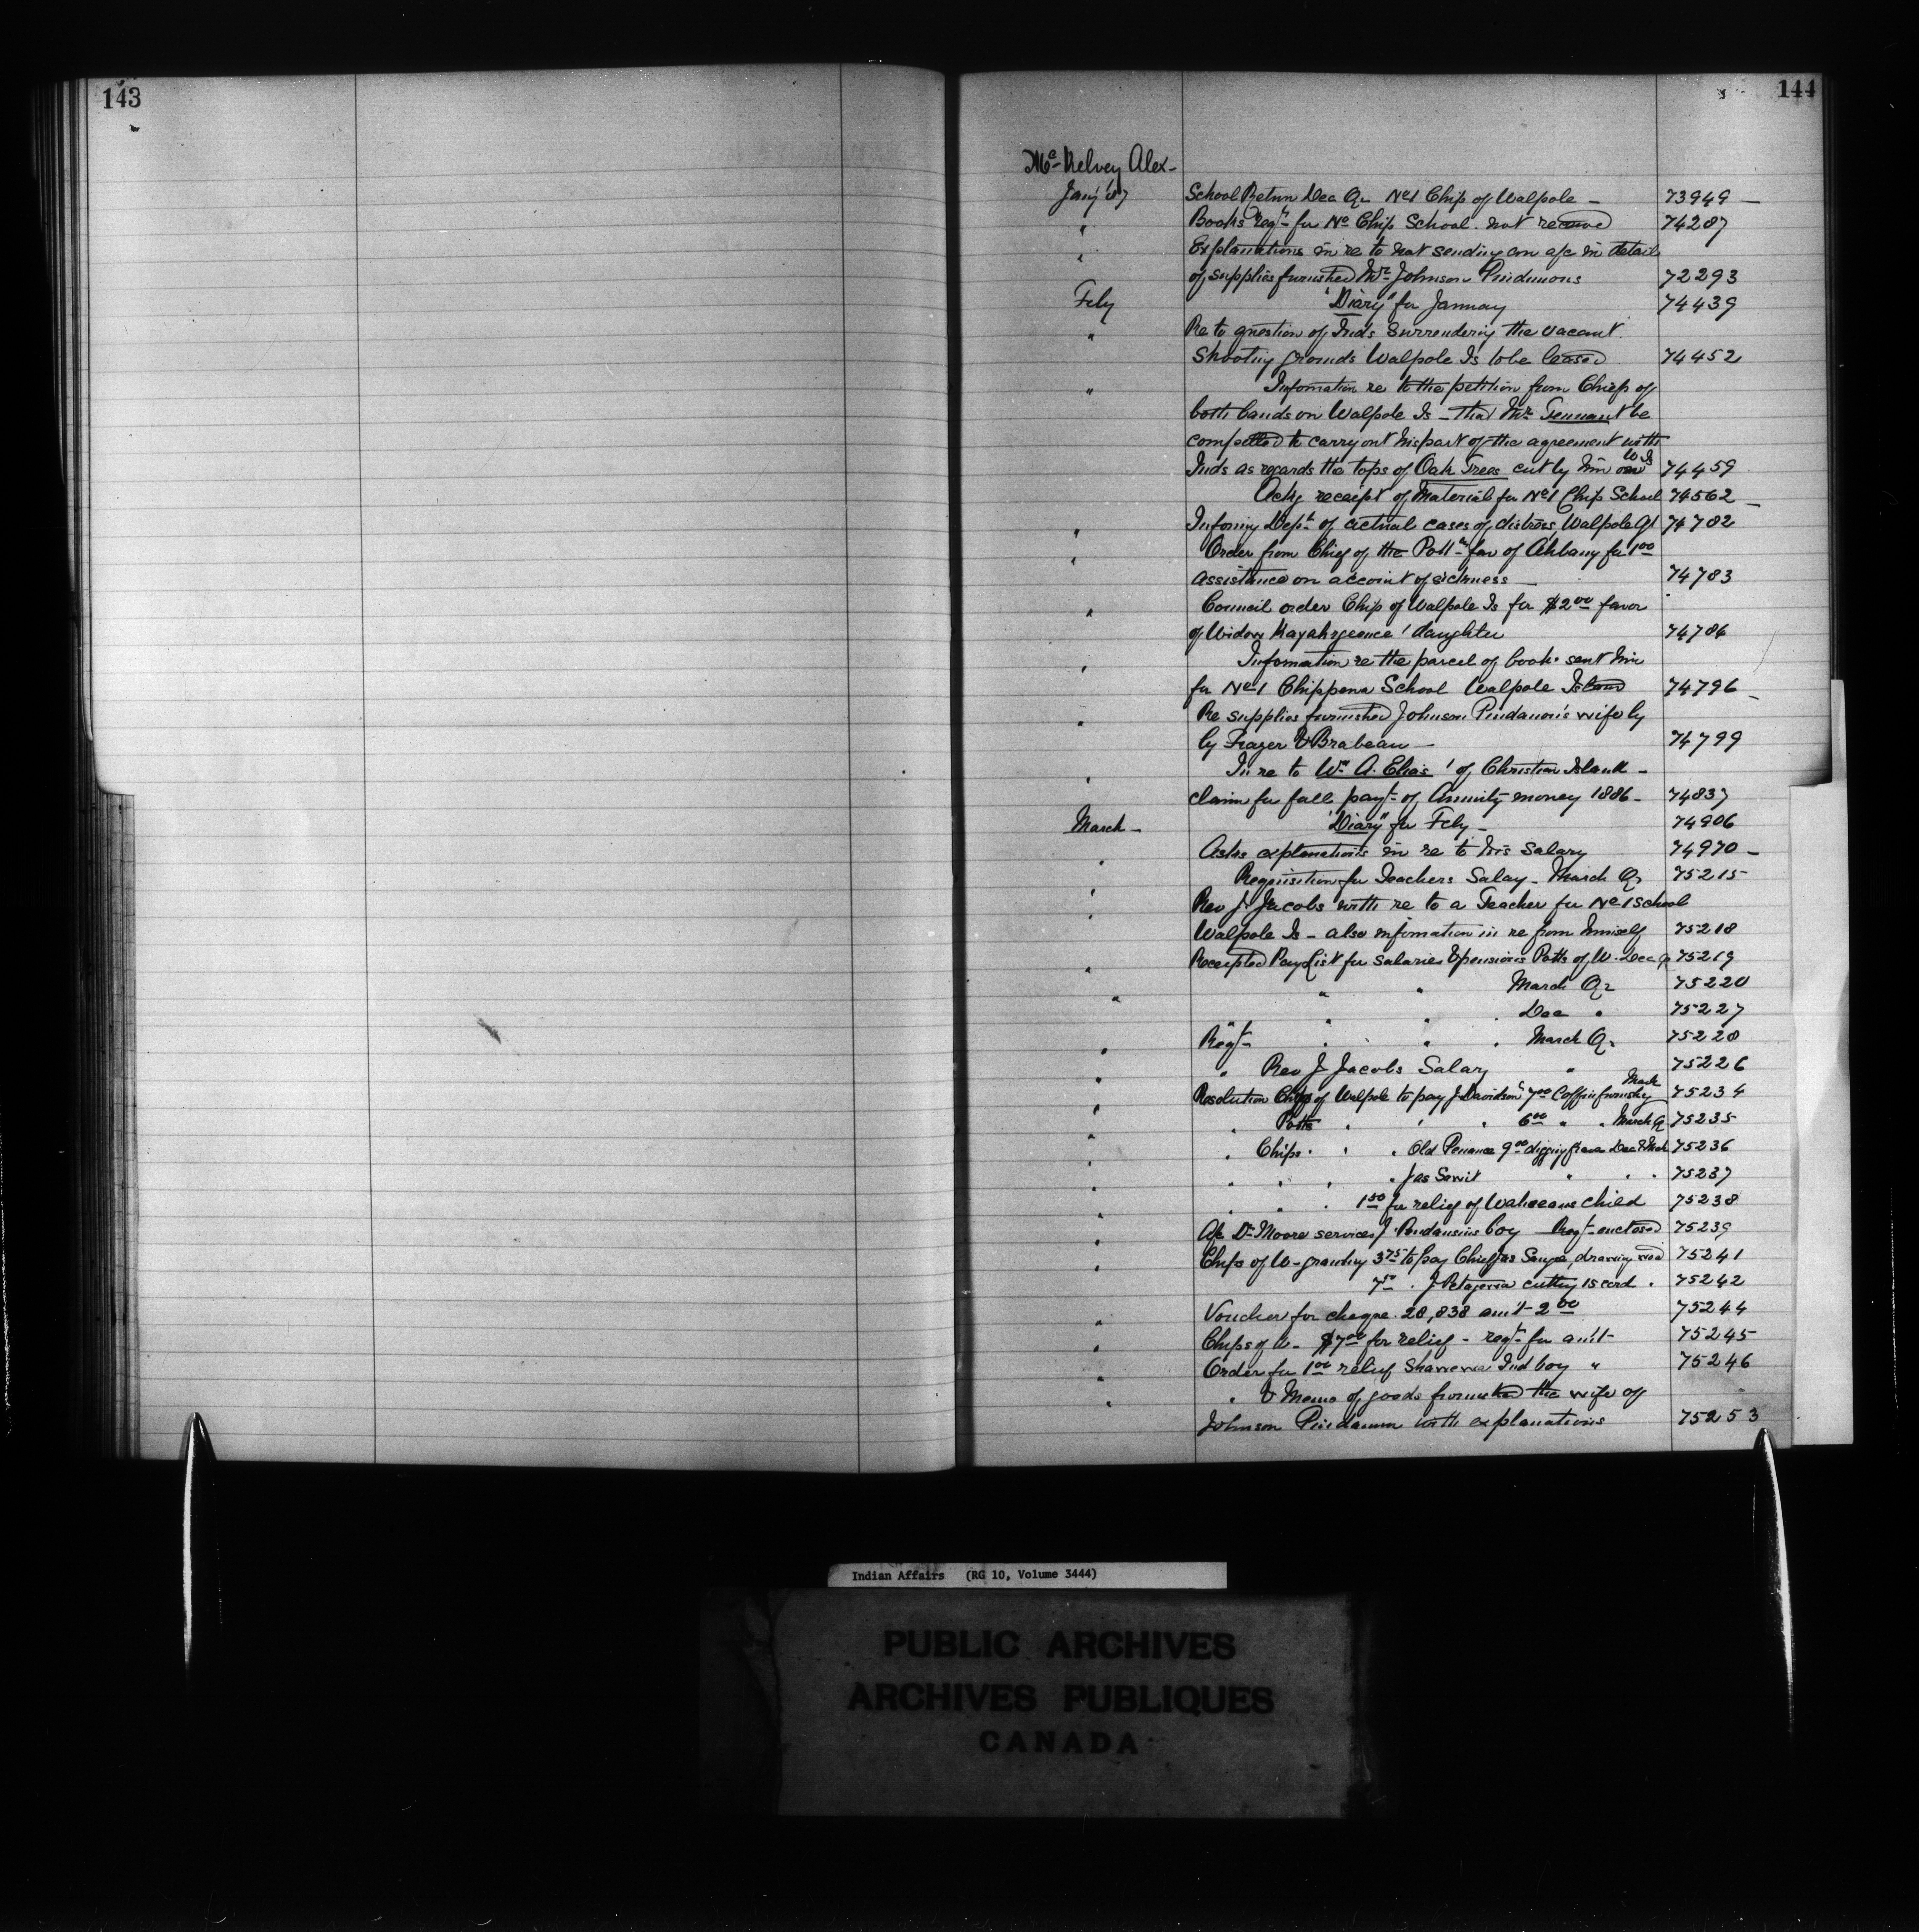 143
144
Mc Kelvey Alex -
Jany '87 School Return Dec Qr No 1 Chip of Walpole - 73949 -
" Books reqd for No Chip School. not received 74287
" Explanations in re to not sending an a/c in detail
of supplies furnished Mrs Johnson Pindimons 72293
Feby "Diary" for January 74439
" Re to question of Inds surrendering the vacant
Shooting grounds Walpole Is to be leased 74452
" Information re to the petition from Chiefs of
both bands on Walpole Is - that Mr Tennant be
compelled to carry out his part of the agreement with
Inds as regards the tops of Oak Trees cut by him on W Is 74459
Ackg receipt of Material for No 1 Chip School 74562 -
" Informg Dept of actual cases of distress Walpole 74782
" Order from Chief of the Potts fav of Ahbany for 1 00
assistance on account of sickness - 74783
" Council order Chip of Walpole Is for $2 00 favor
of Widow daughter 74786
" Information re the parcel of books sent him
for No 1 Chippewa School Walpole Island 74796 -
" Re supplies furnished Johnson Pindamon's wife by
by Frazer & Brabeau - 74799
" In re to Wm A. Elias' of Christian Island -
claim for full payt of Annuity money 1886 - 74837
March - "Diary" for Feby - 74906
" Asks explanations in re to his Salary 74970 -
" Requisition for Teachers Salay - March Qr 75215
" Rev J Jacobs with re to a Teacher for No 1 School
Walpole Is - also information in re from himself 75218
" Receipted Pay List for Salaries & pensions Potts of W. Dec Q 75219
" " " March Qr 75220
" " " Dec " 75227
" Reqt " " " March Qr 75228
" " Rev J Jacobs Salary " 75226
" Resolution Chips of Walpole to pay J Davidson 7 00 Coffin furnishg March 75234
" " Potts " " " 6 00 " " March Q 75235
" " Chips " " " Old 9 00 digging graves Dec & Mch 75236
" " " " " Jas " " " 75237
" " " " 1 50 for relief of child 75238
" A/c Dr Moore services J. boy Reqt enclosed 75239
" Chips of W - granting 3 75 to pay Chief drawing wood 75241
7 50 " J cutting 15 cord " 75242
" Voucher for cheque 28,838 amt 2 00 75244
" Chips of W - $7 00 for relief - reqt for amt 75245
" Order for 1 00 relief Ind boy " 75246
" " & Memo of goods furnished the wife of
Johnson Pindamon with explanations 75253
Indian Affairs (RG 10, Volume 3444)
PUBLIC ARCHIVES
ARCHIVES PUBLIQUES
CANADA